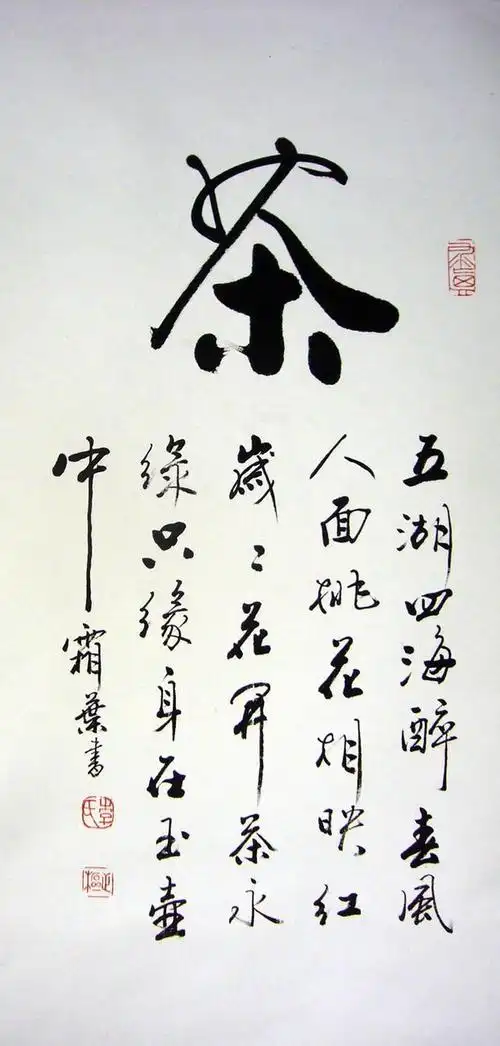 茶
五湖四海醉春風
人面桃花相映红
歲〻花開茶永
綠只缘身在玉壶
中霜葉書
李氏